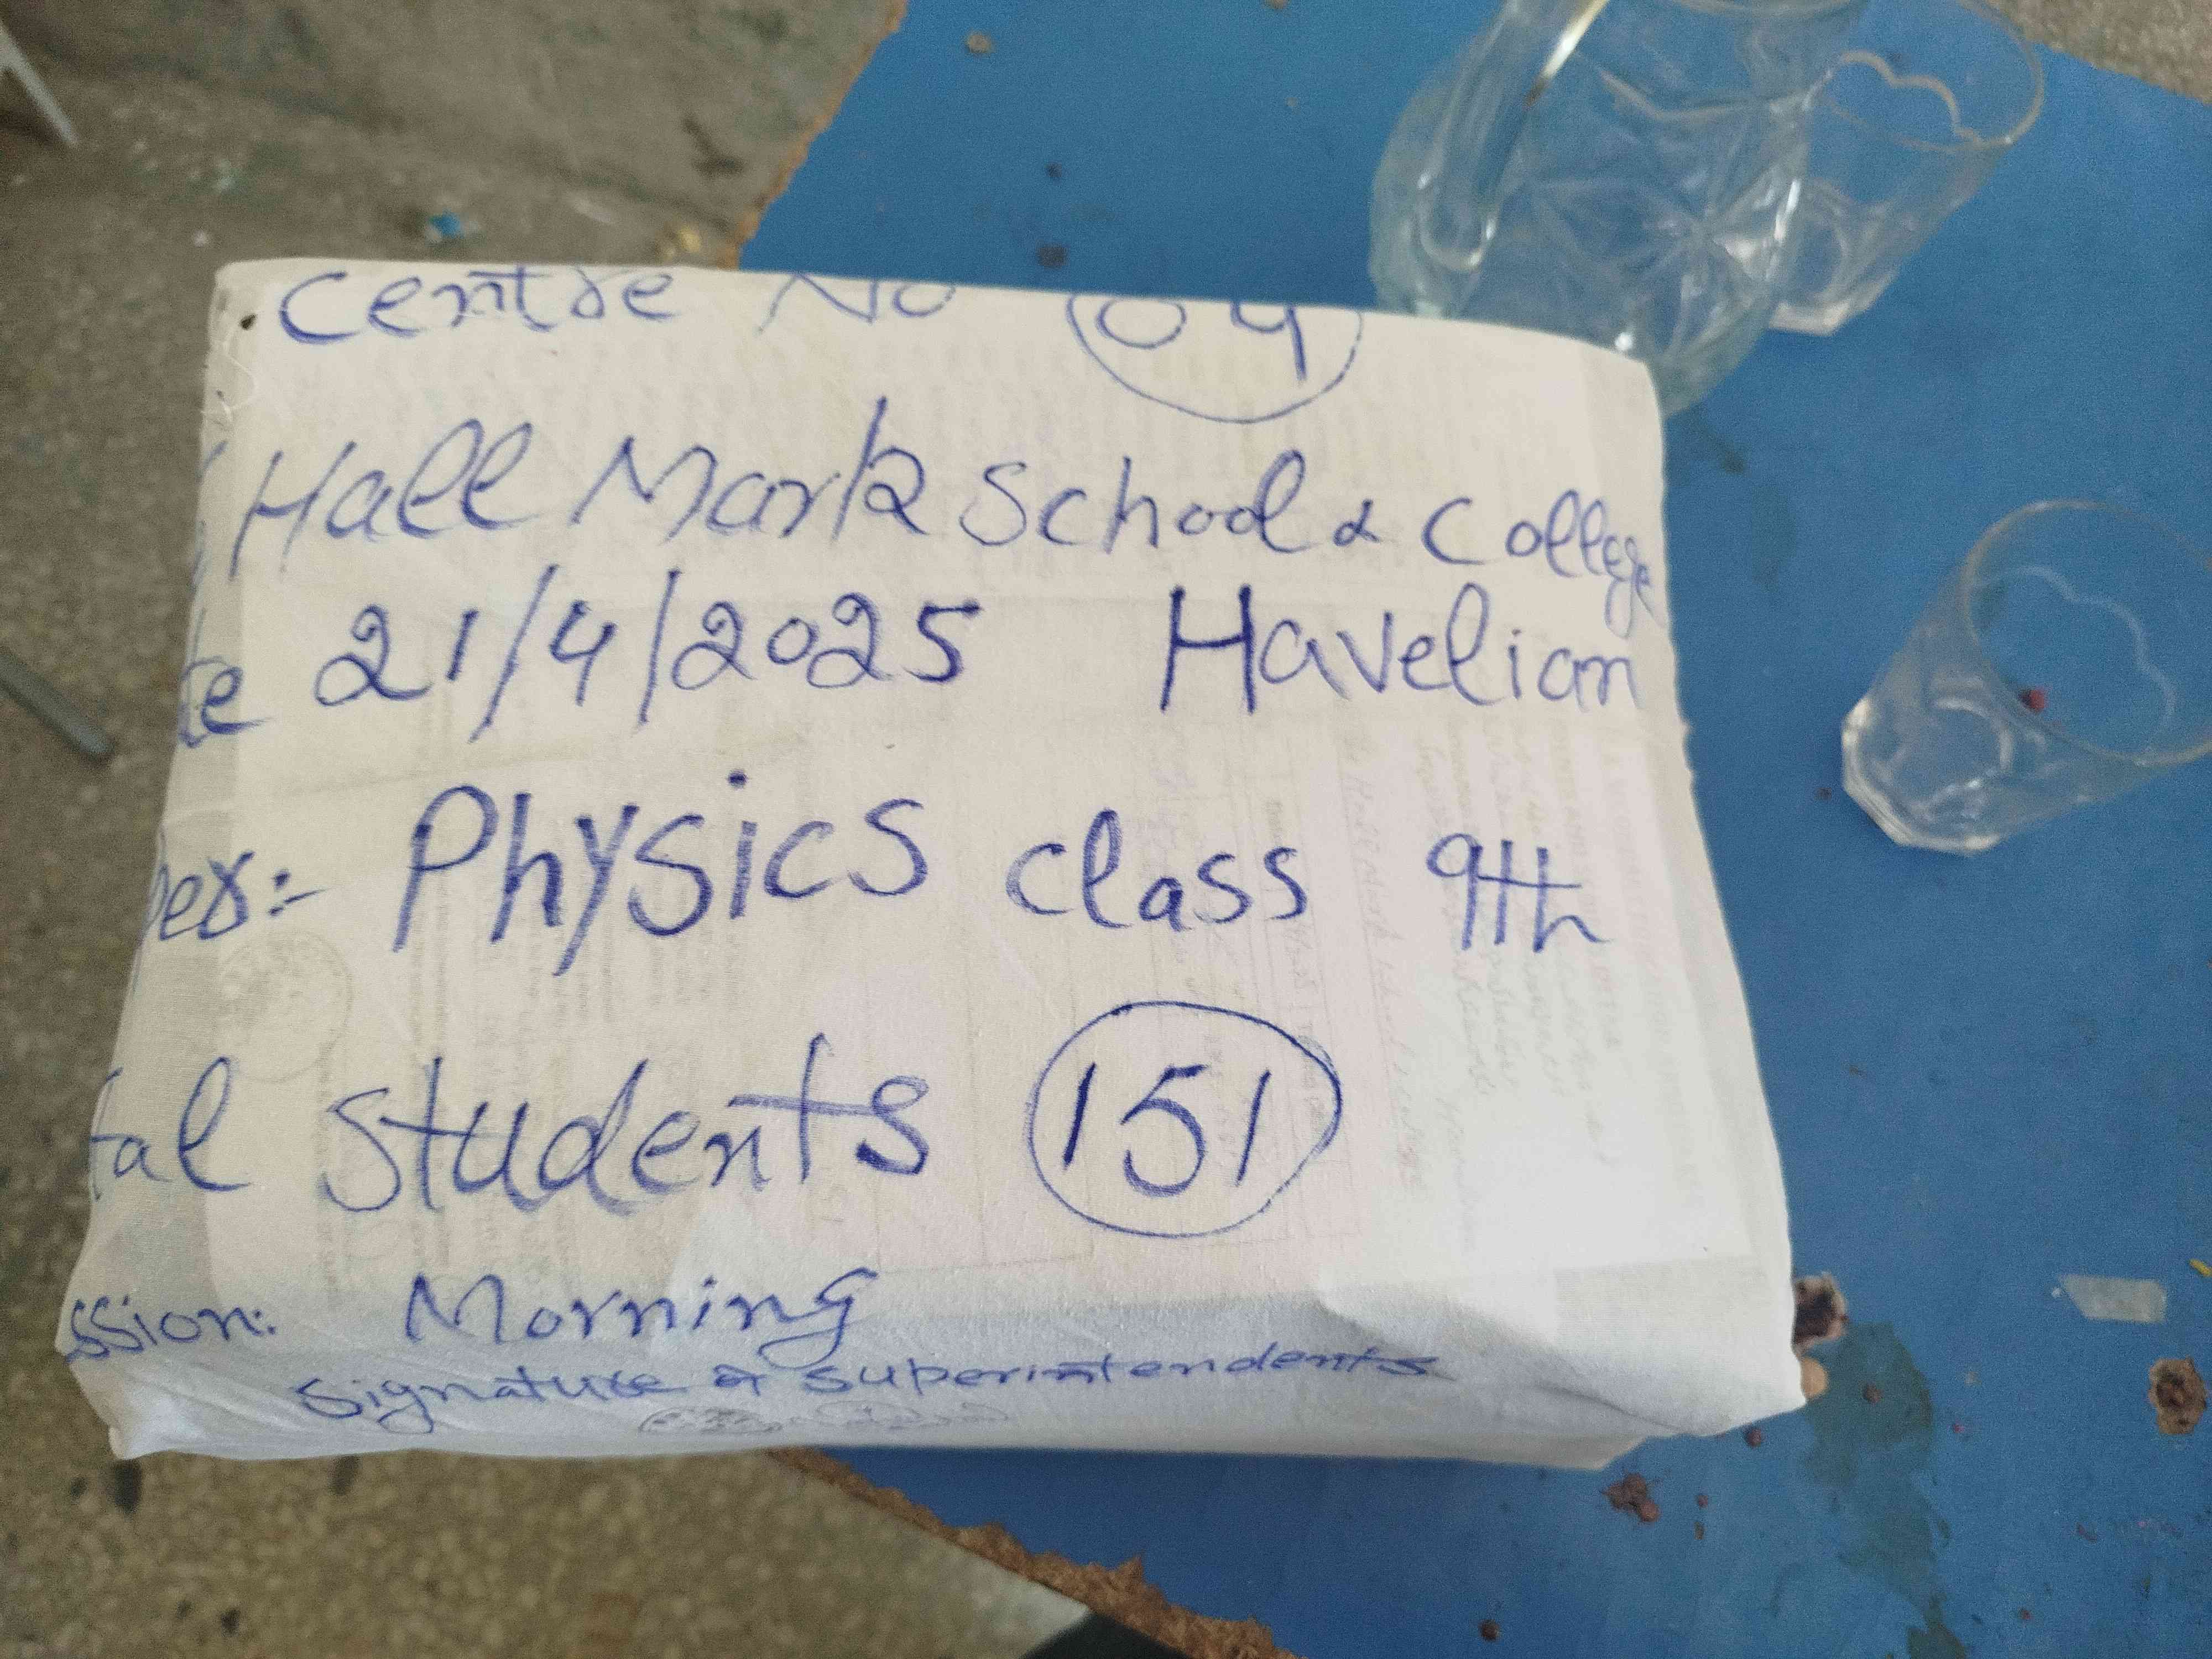 Centre No 04
Hall Mark School & College
te 21/4/2025 Havelian
per:- Physics class 9th
tal students 151
ssion: Morning
Signature of superintendents